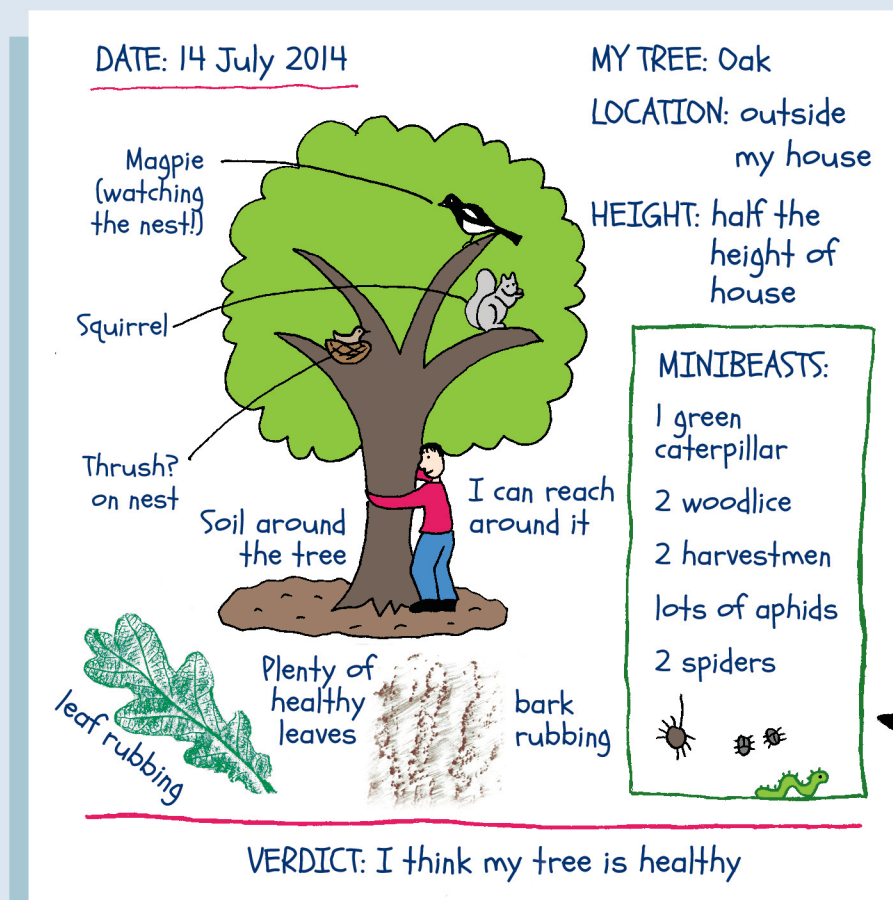 DATE: 14 July 2014
MY TREE: Oak
LOCATION: outside
my house
HEIGHT: half the
height of
house
Magpie
(watching
the nest!)
Squirrel
Thrush?
on nest
Soil around
the tree
I can reach
around it
MINIBEASTS:
1 green
caterpillar
2 woodlice
2 harvestmen
lots of aphids
2 spiders
leaf rubbing
Plenty of
healthy
leaves
bark
rubbing
VERDICT: I think my tree is healthy